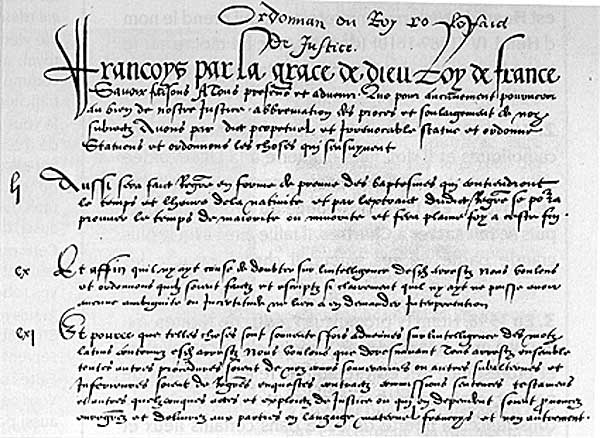 Ordonnan du Roy le faict
de Justice.
Francoys par la grace de dieu Roy de france
Savoir faisons A Tous presens et advenir. Que pour aucunement pourveoir
au bien de nostre Justice. abbreviation des proces et soulaigement de noz
subiectz Avons par edict perpetuel et Irrevocable statue et ordonne
Statuons et ordonnons les choses qui sensuyvent
li Aussi sera faict Regre en forme de preuve des baptesmes qui contiendront
le temps et lheure dela nativite et par lextraict dudict Regre se pora
prouver le temps de maiorite ou minorite et fera plaine foy a ceste fin.
cx Et affin quil ny ayt cause de doubter sur lintelligence desdz arrestz nous voulons
et ordonnons quilz soient faictz et escriptz si clairement quil ny ayt ne puisse avoir
aucune ambiguite ou Incertitude ne lieu a en demander Interpretation
cxi Et pource que telles choses sont souventesfois advenues sur lintelligence des motz
latins contenuz esdz arrestz Nous voulons que doresnavant Tous arrestz ensemble
toutes autres procedures soient de noz cours souveraines ou autres subalternes et
Inferieures soient de Regres enquestes contractz commissions sentences testamens
et autres quelzconques actes et exploictz de Justice ou qui en dependent soient prononcez
enregrez et delivrez aux parties en langaige maternel francoys et non autrement.